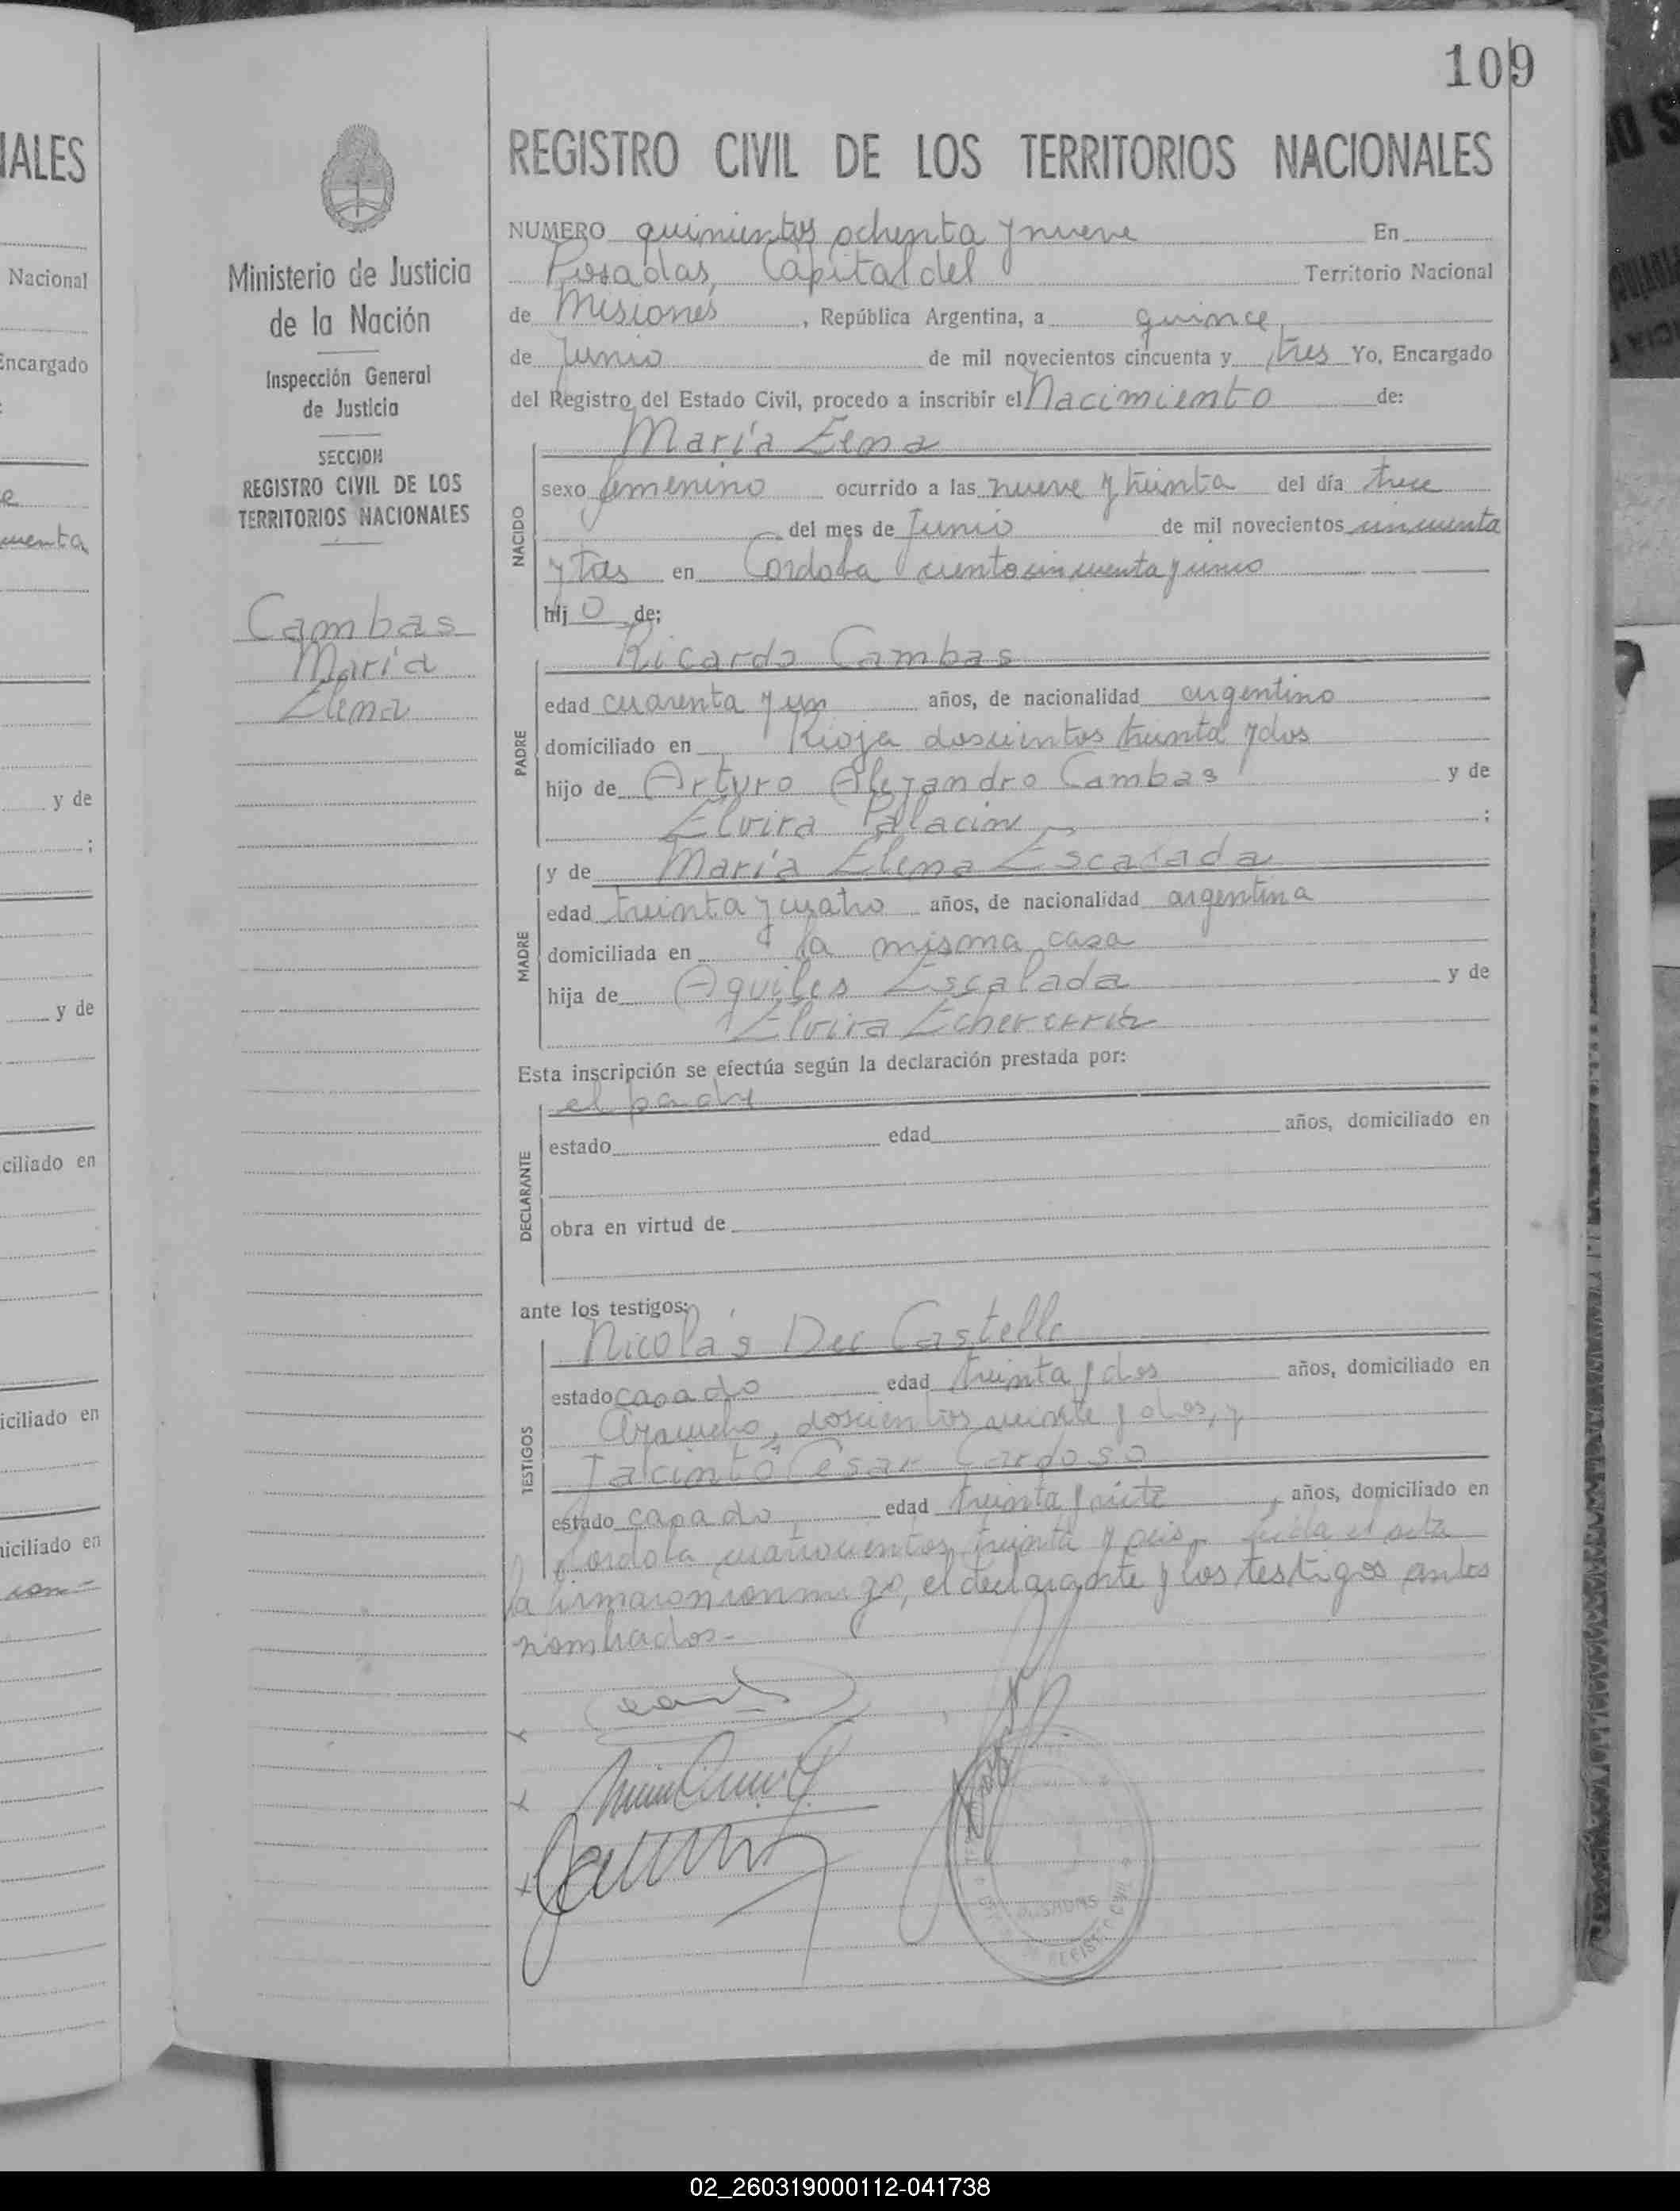 109
REGISTRO CIVIL DE LOS TERRITORIOS NACIONALES
NUMERO quinientos ochenta y nueve En
Posadas, Capital del Territorio Nacional
de Misiones, República Argentina, a quince
de Junio de mil novecientos cincuenta y tres Yo, Encargado
del Registro del Estado Civil, procedo a inscribir el Nacimiento de:
NACIDO
María Elena
sexo femenino ocurrido a las nueve y treinta del día trece
del mes de Junio de mil novecientos cincuenta
y tres en Cordoba ciento cincuenta y cinco
hij o de:
PADRE
Ricardo Cambas
edad cuarenta y un años, de nacionalidad argentino
domiciliado en Rioja doscientos treinta y dos
hijo de Arturo Alejandro Cambas y de
Elvira Palacin ;
MADRE
y de María Elena Escalada
edad treinta y cuatro años, de nacionalidad argentina
domiciliada en la misma casa
hija de Aquiles Escalada y de
Elvira Echeverría
Esta inscripción se efectúa según la declaración prestada por:
DECLARANTE
el padre
estado edad años, domiciliado en
obra en virtud de
ante los testigos:
TESTIGOS
Nicolás Castello
estado casado edad treinta y dos años, domiciliado en
Ayacucho, doscientos veinte y dos, y
Jacinto Cesar Cardoso
estado casado edad treinta y siete, años, domiciliado en
Cordoba cuatrocientos treinta y seis, leida el acta
la firmaron conmigo, el declarante y los testigos antes
nombrados.-
POSADAS
REGISTRO CIVIL
Ministerio de Justicia
de la Nación
Inspección General
de Justicia
SECCION
REGISTRO CIVIL DE LOS
TERRITORIOS NACIONALES
Cambas
María
Elena
IALES
Nacional
Encargado
menta
y de
;
y de
ciliado en
iciliado en
iciliado en
con-
02_260319000112-041738